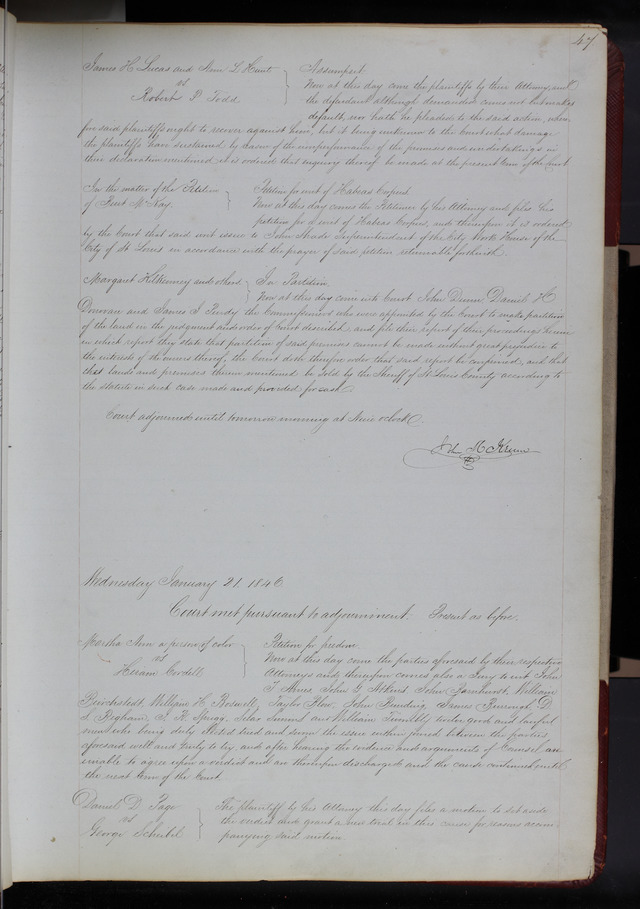 47
James H. Lucas and Ann L. Hunt } Assumpsit.
vs Now at this day come the plaintiffs by their Attorney, and
Robert P. Todd the defendant although demanded comes not but makes
default, nor hath he pleaded to the said action, where
fore said plaintiffs ought to recover against him, but it being unknown to the Court what damage
the plaintiffs have sustained by reason of the nonperformance of the promises and undertakings in
their declaration mentioned, it is ordered that enquiry thereof be made at the present term of the Court
In the matter of the Petition } Petition for writ of Habeas Corpus
of McNay. Now at this day comes the Petitioner by his Attorney and files his
petition for a writ of Habeas Corpus, and thereupon it is ordered
by the Court that said writ issue to John Superintendent of the City Work House of the
City of St Louis in accordance with the prayer of said petition returnable forthwith.
Margaret Kilkenney and others } In Partition.
Now at this day come into Court John Dunn Daniel H
Donovan and James S. Purdy the Commissioners who were appointed by the Court to make partition
of the land in the judgment and order of Court described and file their report of their proceedings herein
in which report they state that partition of said premises cannot be made without great prejudice to
the interests of the owners thereof, the Court doth therefore order that said report be confirmed, and that
that lands and premises therein mentioned be sold by the Sheriff of St Louis County according to
the statute in such case made and provided, for cash.
Court adjourned until tomorrow morning at Nine oclock.
Jno M Krum
Wednesday January 21. 1846
Court met pursuant to adjournment. Present as before.
Martha Ann a person of color } Petition for freedom.
vs Now at this day come the parties aforesaid by their respective
Hiram Cordell Attorneys and thereupon comes also a Jury to wit John
T Ames John G Atkins John Farnhurst, William
Beirchstedt, William H. Boswell, Taylor Blow, John Bunding, James Burrough, D
S. Bigham, S. R. Spragg, Silas and William Twombly twelve good and lawful
men who being duly elected tried and sworn the issue within joined between the parties
aforesaid well and truly to try and after hearing the evidence and arguments of Counsel are
unable to agree upon a verdict and are thereupon discharged and the cause continued until
the next term of the Court.
Daniel D. Page } The plaintiff by his Attorney this day files a motion to set aside
vs the verdict and grant a new trial in this cause for reasons accom-
George Scheibel panying said motion.